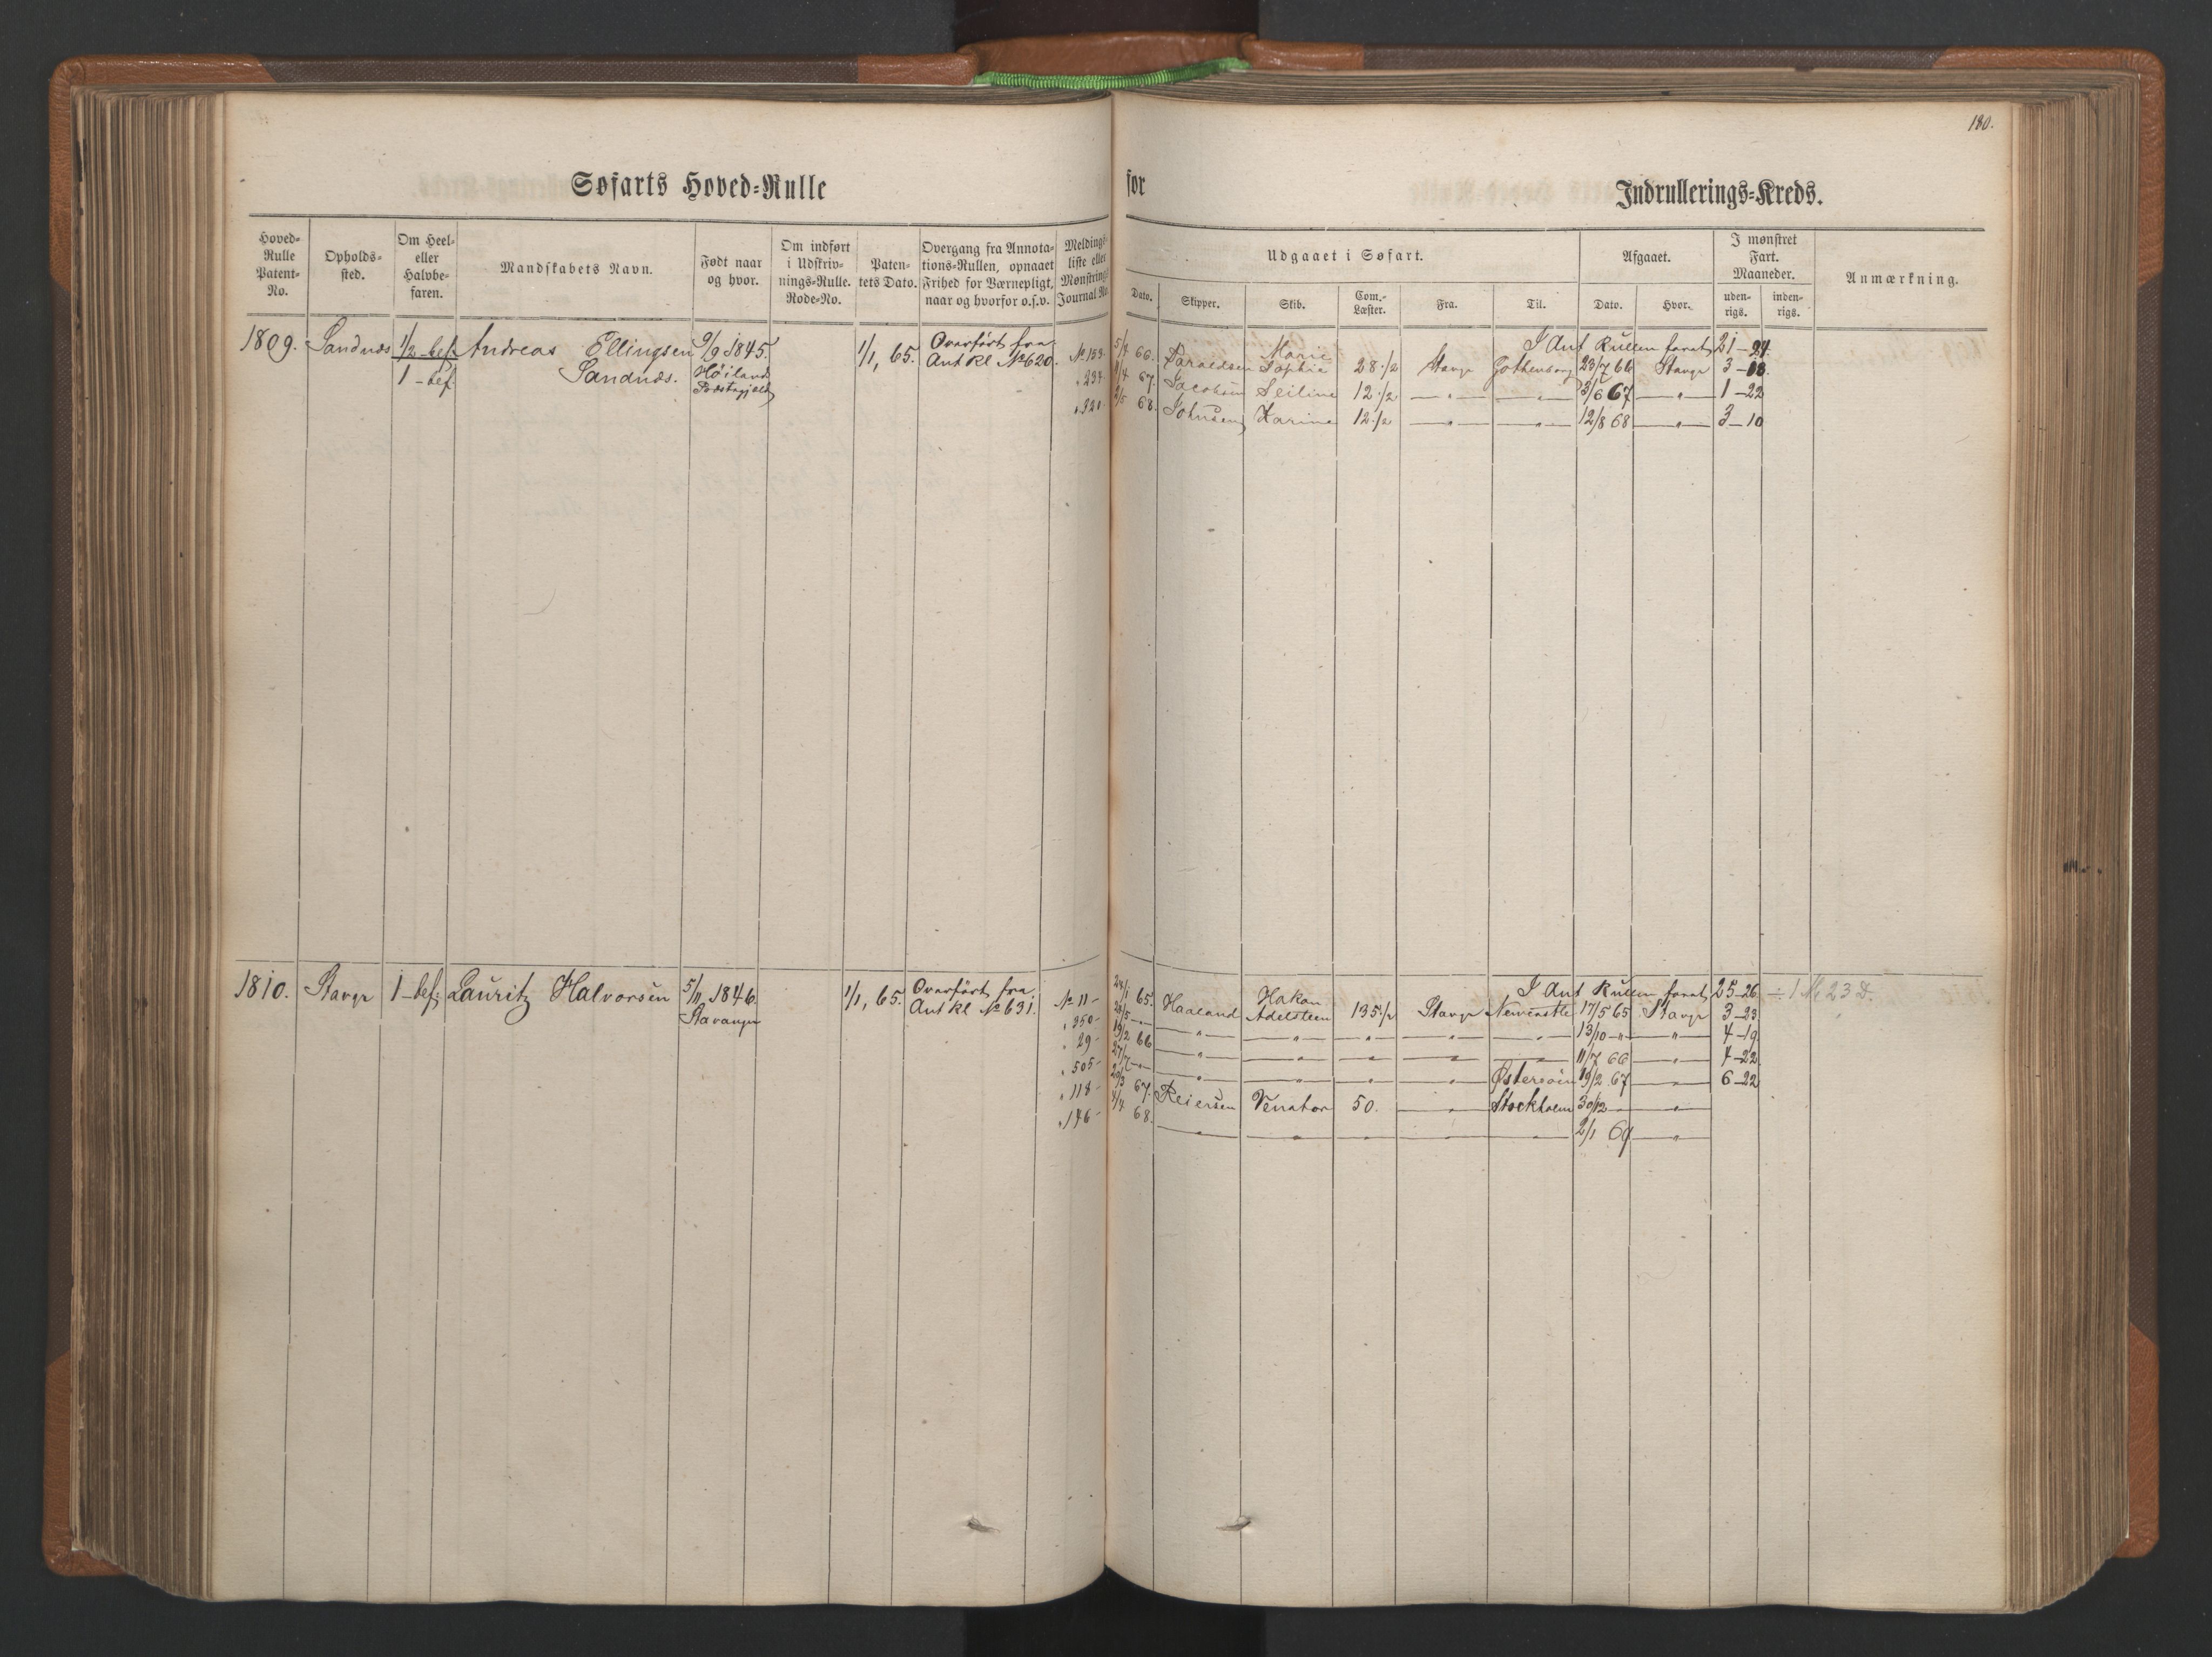 180.
Søfarts Hoved-Rulle for Indrullerings-Kreds.
Hoved-Rulle Patent-No.
Opholds-sted.
Om Heel- eller Halvbe-faren.
Mandskabets Navn.
Født naar og hvor.
Om indført i Udskriv-nings-Rulle. Rode-No.
Paten-tets Dato.
Overgang fra Annota-tions-Rullen, opnaaet Frihed for Værnepligt, naar og hvorfor o.s.v.
Meldings-liste eller Mønstrings Journal No.
Udgaaet i Søfart.
Dato. Skipper. Skib. Com.-Læster. Fra. Til.
Afgaaet.
Dato. Hvor.
I mønstret Fart. Maaneder.
uden-rigs. inden-rigs.
Anmærkning.
1809. Sandnæs 1/2 - bef. Andreas Ellingsen 9/9 1845. 1/1, 65. Overført fra
1 - bef. Sandnæs. Høiland Ant Rl № 620.
Præstegjeld
I Ant Rullen faret 21 - 24.
№ 159- 5/4 66. Marie Sophie 28 1/2 Stavgr Gothenborg 23/7 66 Stavgr 3 - 18.
" 234- 67. Jacobsen Seiline 12 1/2 — " — — " — 3/6 67 — " — 1 - 22
" 320- 2/5 68. Johnsen Karine 12 1/2 — " — — " — 12/8 68 — " — 3 - 10
1810. Stavgr 1 - bef. Lauritz Halvorsen 5/11 1846. 1/1, 65. Overført fra
Stavanger Ant Rl № 631.
I Ant Rullen faret 25 - 26 ÷ 1 M 23 D.
№ 11- 24/1 65. Haaland Hakon Adelsteen 135 1/2 Stavgr Newcastle 17/5 65 Stavgr 3 - 23
" 350- 26/5 — " — — " — — " — — " — — " — — " — 13/10 - " - — " — 4 - 19
" 29- 19/2 66 — " — — " — — " — — " — — " — 11/7 66 — " — 4 - 22
" 505- 27/7 - " - — " — — " — — " — — " — Østersøen 19/2 67 — " — 6 - 22
" 118- 20/3 67. Reiersen Venator 50. — " — Stockholm 30/12 — — " —
" 146- 4/4 68. — " — — " — — " — — " — — " — 2/1 69 — " —